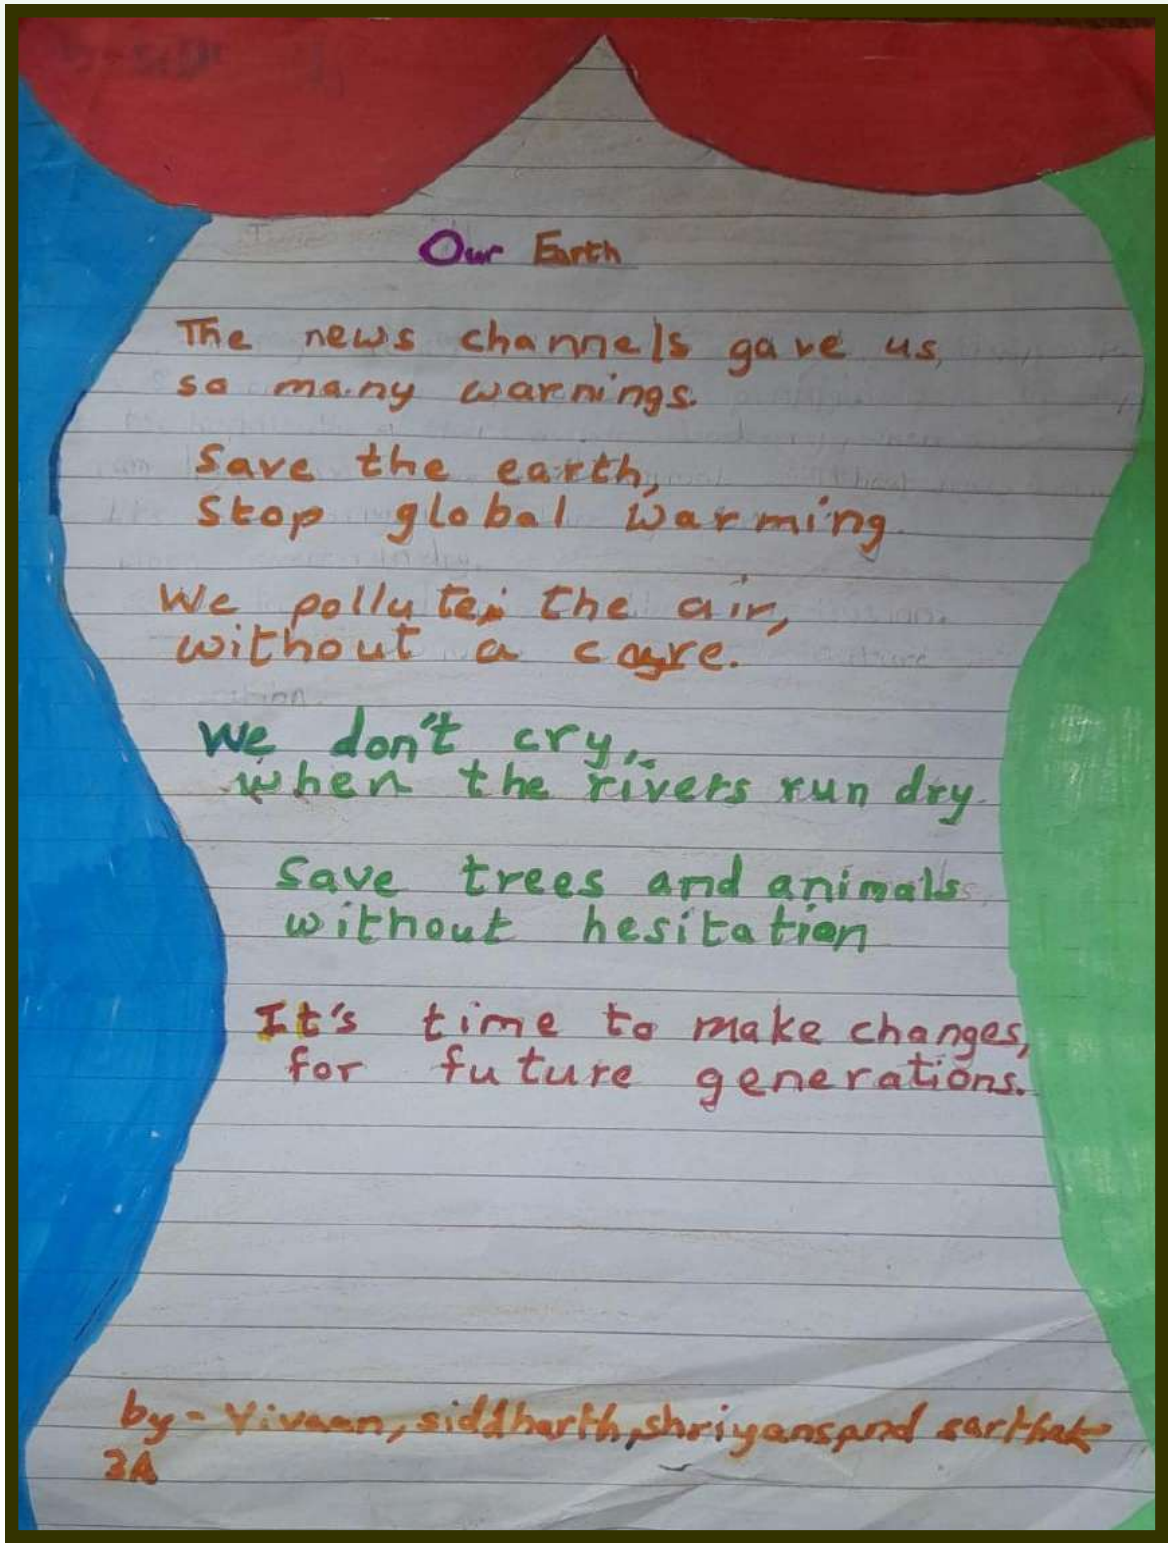 Our Earth
The news channels gave us,
so many warnings.
Save the earth,
Stop global warming.
We pollute the air,
without a care.
We don't cry,
when the rivers run dry
Save trees and animals
without hesitation
It's time to make changes,
for future generations.
by - Vivaan, siddharth, shriyans and sarthak
3A